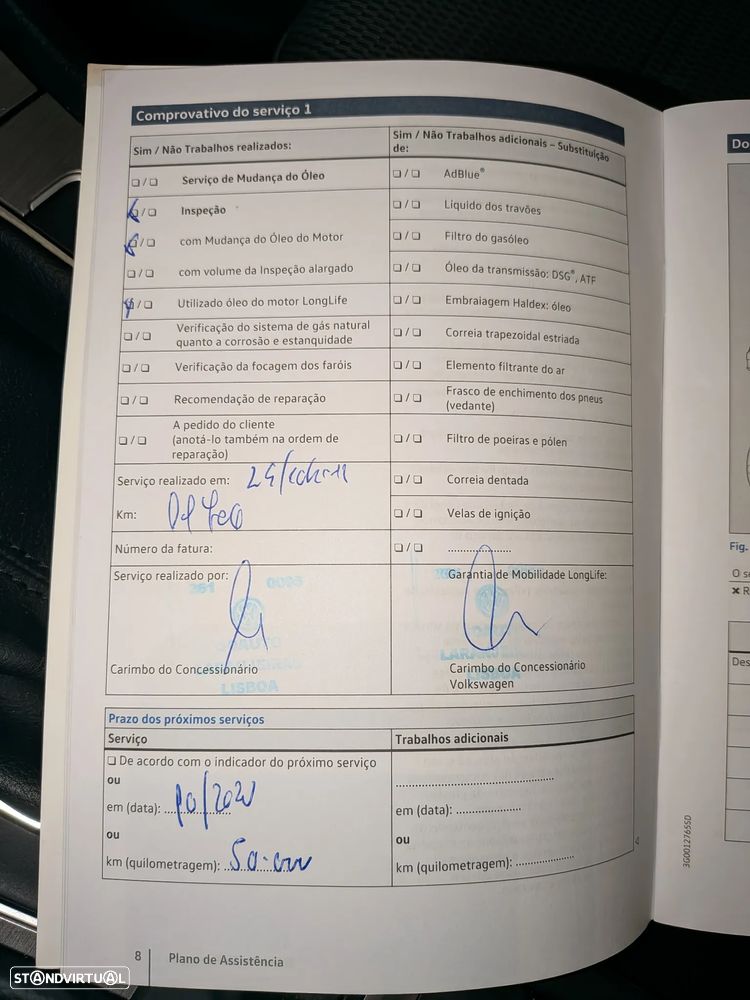 Comprovativo do serviço 1
Sim / Não Trabalhos realizados:
❏ / ❏ Serviço de Mudança do Óleo
❏ / ❏ Inspeção
❏ / ❏ com Mudança do Óleo do Motor
❏ / ❏ com volume da Inspeção alargado
❏ / ❏ Utilizado óleo do motor LongLife
❏ / ❏ Verificação do sistema de gás natural
quanto a corrosão e estanquidade
❏ / ❏ Verificação da focagem dos faróis
❏ / ❏ Recomendação de reparação
❏ / ❏ A pedido do cliente
(anotá-lo também na ordem de
reparação)
Serviço realizado em:
Km:
Número da fatura:
Serviço realizado por:
Carimbo do Concessionário
LISBOA
Sim / Não Trabalhos adicionais – Substituição
de:
❏ / ❏ AdBlue®
❏ / ❏ Líquido dos travões
❏ / ❏ Filtro do gasóleo
❏ / ❏ Óleo da transmissão: DSG®, ATF
❏ / ❏ Embraiagem Haldex: óleo
❏ / ❏ Correia trapezoidal estriada
❏ / ❏ Elemento filtrante do ar
❏ / ❏ Frasco de enchimento dos pneus
(vedante)
❏ / ❏ Filtro de poeiras e pólen
❏ / ❏ Correia dentada
❏ / ❏ Velas de ignição
❏ / ❏ ....................
Garantia de Mobilidade LongLife:
Carimbo do Concessionário
Volkswagen
LISBOA
Prazo dos próximos serviços
Serviço
❏ De acordo com o indicador do próximo serviço
ou
em (data):
ou
km (quilometragem):
Trabalhos adicionais
em (data): ....................
ou
km (quilometragem): ..................
8 Plano de Assistência
3G0012765SD
Do
Fig.
O se
Des
STANDVIRTUAL